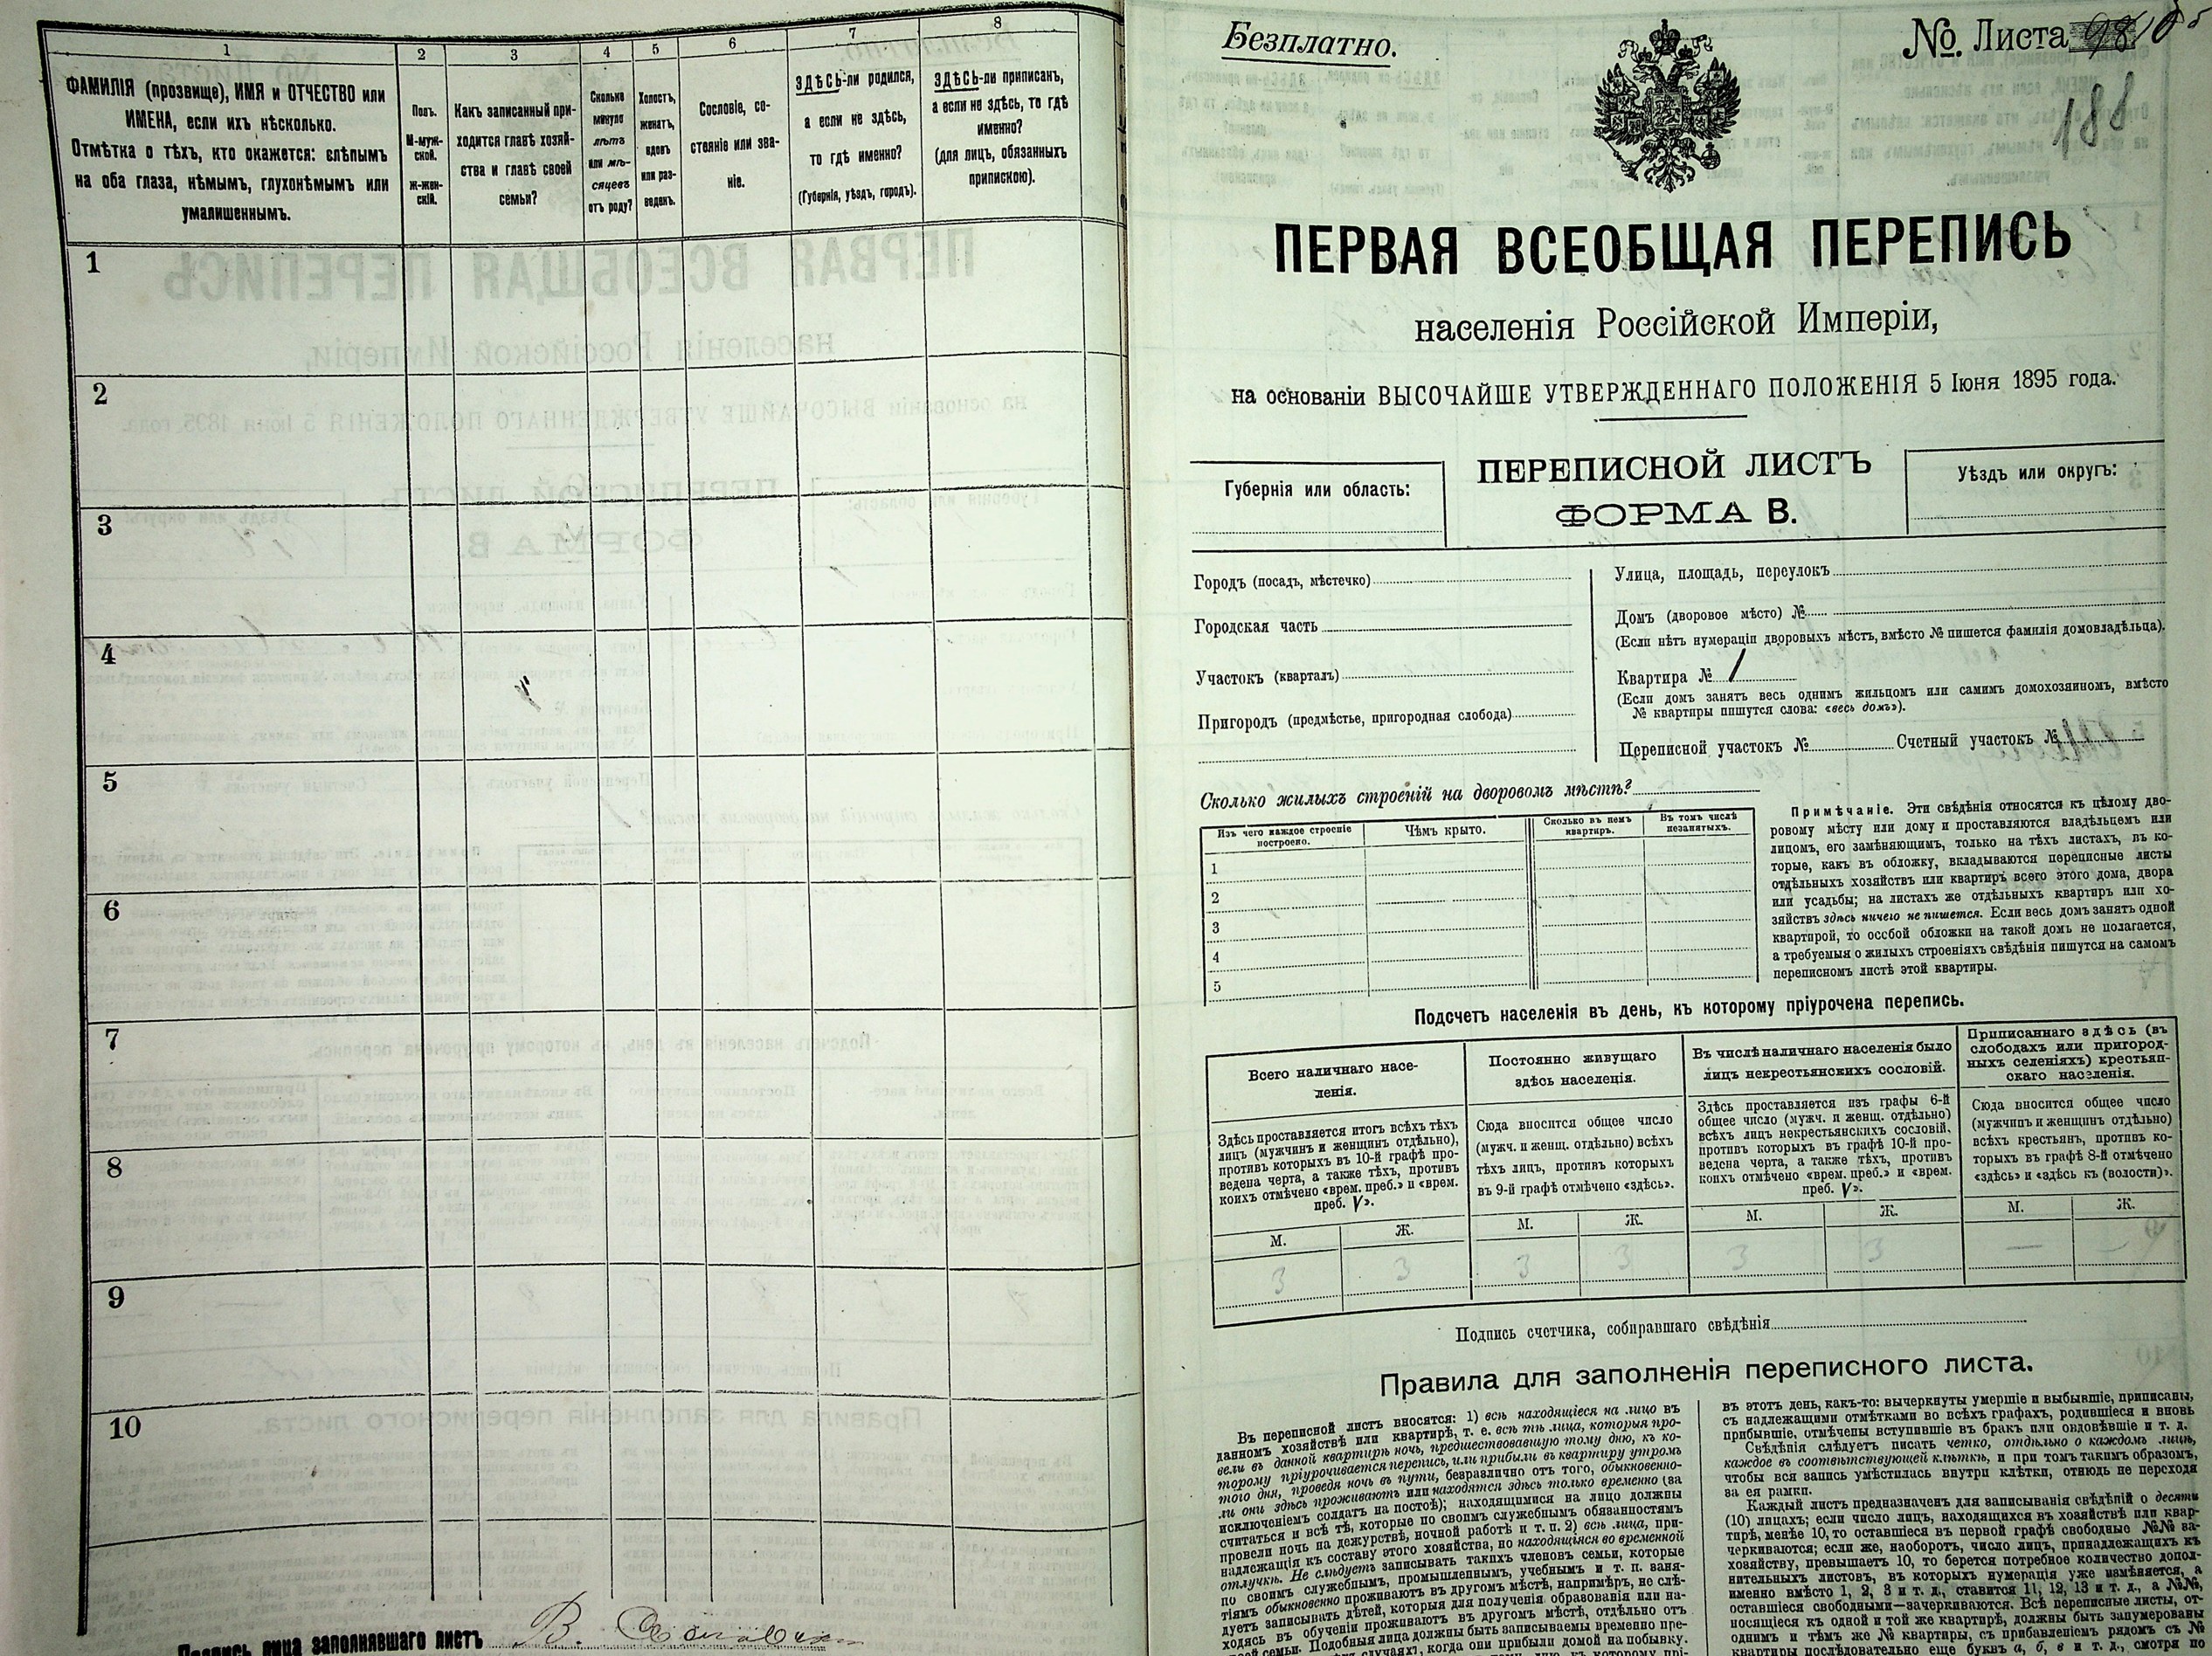 1 2 3 4 5 6 7 8
ФАМИЛІЯ (прозвище), ИМЯ и ОТЧЕСТВО или
ИМЕНА, если ихъ нѣсколько.
Отмѣтка о тѣхъ, кто окажется: слѣпымъ
на оба глаза, нѣмымъ, глухонѣмымъ или
умалишеннымъ.
Полъ.
М-муж-
ской.
ж-жен-
скій.
Какъ записанный при-
ходится главѣ хозяй-
ства и главѣ своей
семьи?
Сколько
минуло
лѣтъ
или мѣ-
сяцевъ
отъ роду?
Холостъ,
женатъ,
вдовъ
или раз-
веденъ.
Сословіе, со-
стояніе или зва-
ніе.
ЗДѢСЬ-ли родился,
а если не здѣсь,
то гдѣ именно?
(Губернія, уѣздъ, городъ).
ЗДѢСЬ-ли приписан,
а если не здѣсь, то гдѣ
именно?
(для лицъ, обязанных
припискою).
1
2
3
4
5
6
7
8
9
10
Подпись лица заполнявшаго листъ В.
Безплатно.
№. Листа
188
ПЕРВАЯ ВСЕОБЩАЯ ПЕРЕПИСЬ
населенія Россійской Имперіи,
на основаніи ВЫСОЧАЙШЕ УТВЕРЖДЕННАГО ПОЛОЖЕНІЯ 5 Іюня 1895 года.
Губернія или область:
ПЕРЕПИСНОЙ ЛИСТЪ
ФОРМА В.
Уѣздъ или округъ:
Городъ (посадъ, мѣстечко)
Городская часть
Участокъ (кварталъ)
Пригородъ (предмѣстье, пригородная слобода)
Улица, площадь, переулокъ
Домъ (дворовое мѣсто) №
(Если нѣтъ нумераціи дворовыхъ мѣстъ, вмѣсто № пишется фамилія домовладѣльца).
Квартира № 1
(Если домъ занятъ весь однимъ жильцомъ или самимъ домохозяиномъ, вмѣсто
№ квартиры пишутся слова: «весь домъ»).
Переписной участокъ № Счетный участокъ №
Сколько жилыхъ строеній на дворовомъ мѣстѣ?
Изъ чего каждое строеніе
построено.
Чѣмъ крыто.
Сколько въ немъ
квартиръ.
Въ томъ числѣ
незанятыхъ.
1
2
3
4
5
Примѣчаніе. Эти свѣдѣнія относятся къ цѣлому дво-
ровому мѣсту или дому и проставляются владѣльцемъ или
лицомъ, его замѣняющимъ, только на тѣхъ листахъ, въ ко-
торые, какъ въ обложку, вкладываются переписные листы
отдѣльныхъ хозяйствъ или квартиръ всего этого дома, двора
или усадьбы; на листахъ же отдѣльныхъ квартиръ или хо-
зяйствъ здѣсь ничего не пишется. Если весь домъ занятъ одной
квартирой, то особой обложки на такой домъ не полагается,
а требуемыя о жилыхъ строеніяхъ свѣдѣнія пишутся на самомъ
переписномъ листѣ этой квартиры.
Подсчетъ населенія въ день, къ которому пріурочена перепись.
Всего наличнаго насе-
ленія.
Здѣсь проставляется итогъ всѣхъ тѣхъ
лицъ (мужчинъ и женщинъ отдѣльно),
противъ которыхъ въ 10-й графѣ про-
ведена черта, а также тѣхъ, противъ
коихъ отмѣчено «врем. преб.» и «врем.
преб. V».
М. Ж.
3 3
Постоянно живущаго
здѣсь населенія.
Сюда вносится общее число
(мужч. и женщ. отдѣльно) всѣхъ
тѣхъ лицъ, противъ которыхъ
въ 9-й графѣ отмѣчено «здѣсь».
М. Ж.
3 3
Въ числѣ наличнаго населенія было
лицъ некрестьянскихъ сословій.
Здѣсь проставляется изъ графы 6-й
общее число (мужч. и женщ. отдѣльно)
всѣхъ лицъ некрестьянскихъ сословій,
противъ которыхъ въ графѣ 10-й про-
ведена черта, а также тѣхъ, противъ
коихъ отмѣчено «врем. преб.» и «врем.
преб. V».
М. Ж.
3 3
Приписаннаго здѣсь (въ
слободахъ или пригород-
ныхъ селеніяхъ) крестьян-
скаго населенія.
Сюда вносится общее число
(мужчинъ и женщинъ отдѣльно)
всѣхъ крестьянъ, противъ ко-
торыхъ въ графѣ 8-й отмѣчено
«здѣсь» и «здѣсь къ (волости)».
М. Ж.
— —
Подпись счетчика, собиравшаго свѣдѣнія
Правила для заполненія переписного листа.
Въ переписной листъ вносятся: 1) всѣ находящіеся на лицо въ
данномъ хозяйствѣ или квартирѣ, т. е. всѣ тѣ лица, которыя про-
вели въ данной квартирѣ ночь, предшествовавшую тому дню, къ ко-
торому пріурочивается перепись, или прибыли въ квартиру утромъ
того дня, проведя ночь въ пути, безразлично отъ того, обыкновенно-
ли они здѣсь проживаютъ или находятся здѣсь только временно (за
исключеніемъ солдатъ на постоѣ); находящимися на лицо должны
считаться и всѣ тѣ, которые по своимъ служебнымъ обязанностямъ
провели ночь на дежурствѣ, ночной работѣ и т. п. 2) всѣ лица, при-
надлежащія къ составу этого хозяйства, но находящіяся во временной
отлучкѣ. Не слѣдуетъ записывать такихъ членовъ семьи, которые
по своимъ служебнымъ, промышленнымъ, учебнымъ и т. п. заня-
тіямъ обыкновенно проживаютъ въ другомъ мѣстѣ, напримѣръ, не слѣ-
дуетъ записывать дѣтей, которыя для полученія образованія или на-
ходясь въ обученіи проживаютъ въ другомъ мѣстѣ, отдѣльно отъ
своей семьи. Подобныя лица должны быть записываемы временно пре-
случаяхъ, когда они прибыли домой на побывку.
въ этотъ день, какъ-то: вычеркнуты умершіе и выбывшіе, приписаны,
съ надлежащими отмѣтками во всѣхъ графахъ, родившіеся и вновь
прибывшіе, отмѣчены вступившіе въ бракъ или овдовѣвшіе и т. д.
Свѣдѣнія слѣдуетъ писать четко, отдѣльно о каждомъ лицѣ,
каждое въ соотвѣтствующей клѣткѣ, и при томъ такимъ образомъ,
чтобы вся запись умѣстилась внутри клѣтки, отнюдь не переходя
за ея рамки.
Каждый листъ предназначенъ для записыванія свѣдѣній о десяти
(10) лицахъ; если число лицъ, находящихся въ хозяйствѣ или квар-
тирѣ, менѣе 10, то оставшіеся въ первой графѣ свободные №№ за-
черкиваются; если же, наоборотъ, число лицъ, принадлежащихъ къ
хозяйству, превышаетъ 10, то берется потребное количество допол-
нительныхъ листовъ, въ которыхъ нумерація уже измѣняется, а
именно вмѣсто 1, 2, 3 и т. д., ставится 11, 12, 13 и т. д., а №№,
оставшіеся свободными—зачеркиваются. Всѣ переписные листы, от-
носящіеся къ одной и той же квартирѣ, должны быть занумерованы
однимъ и тѣмъ же № квартиры, съ прибавленіемъ рядомъ съ №
квартиры послѣдовательно еще буквъ а, б, в и т. д., смотря по